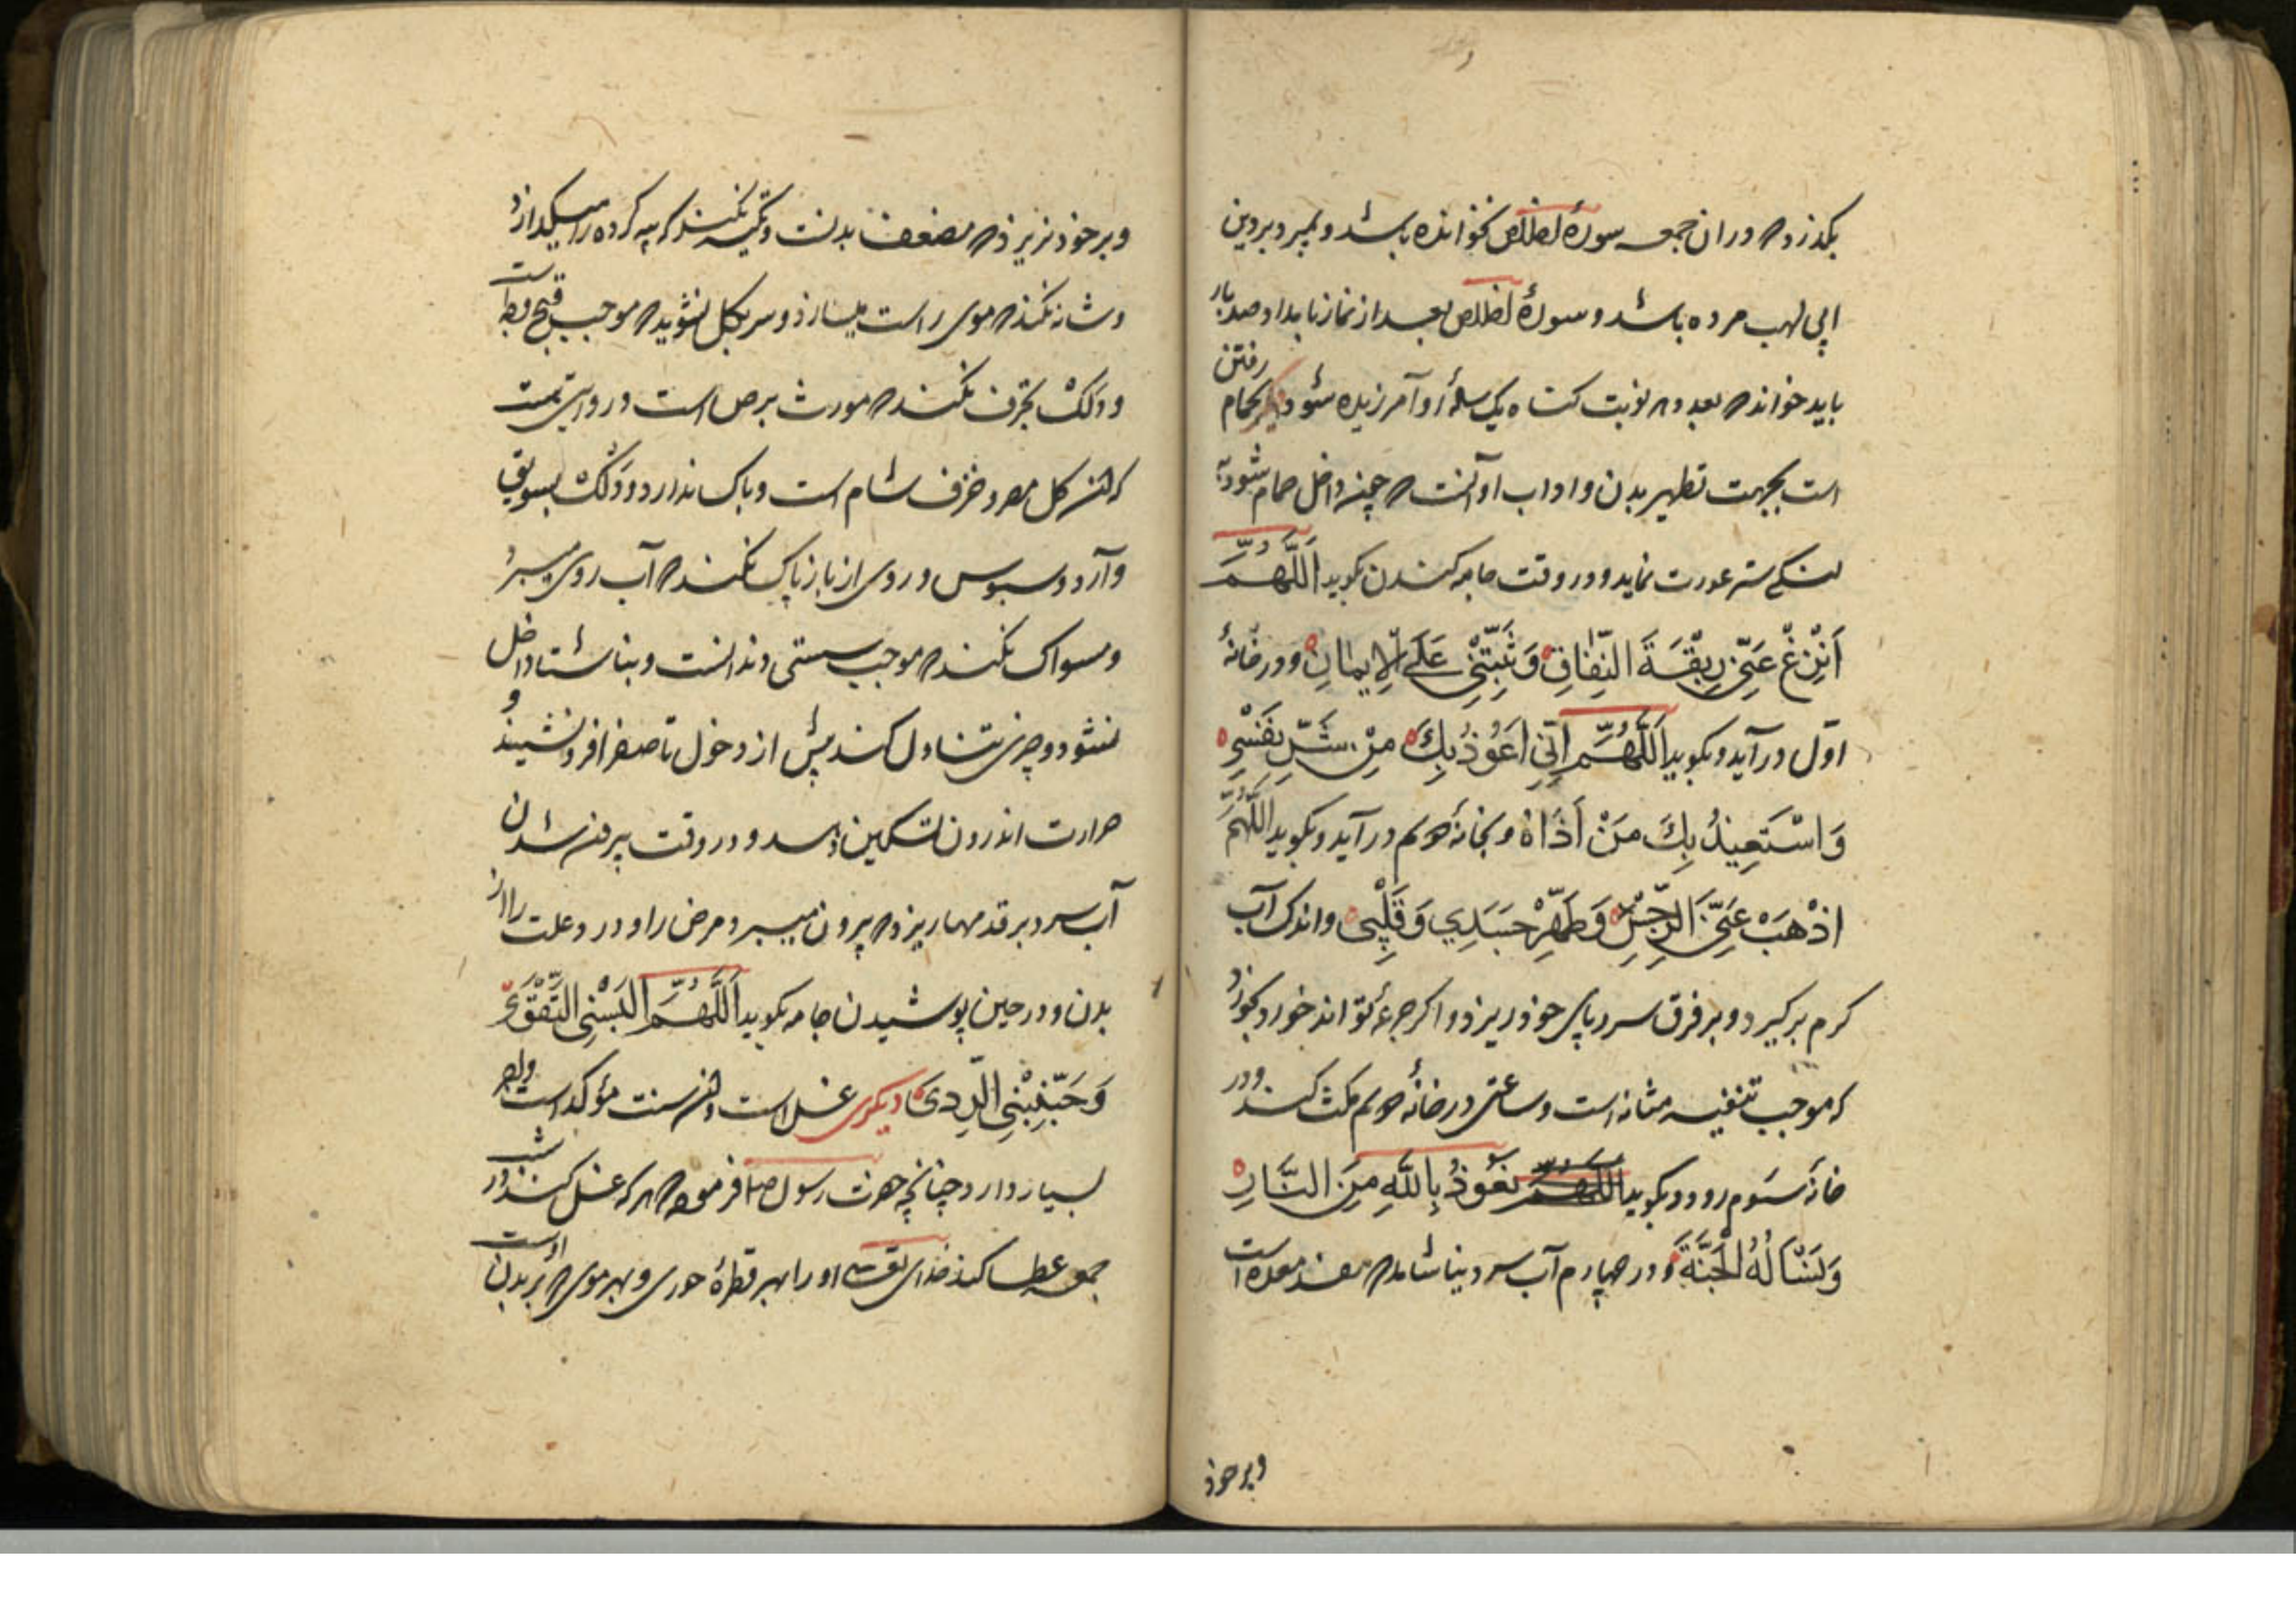 بکذرد که در ان جمعه سورهٔ اخلاص نخوانده باشد و بمیرد بر دین
ابی لهب مرده باشد و سورهٔ اخلاص بعد از نماز بامداد صد بار
باید خواند که بعدد هر نوبت کناه یک ساله او آمرزیده شود دیگر بحمام رفتن
است بجهت تطهیر بدن و اداب او آنست که چون داخل حمام شود به
لنکی ستر عورت نماید و در وقت جامه کندن بکوید اَللّٰهُمَّ
اَنْزِعْ عَنّی رِبْقَةَ النِّفاقِ وَ ثَبِّتْنی عَلَی الْاِیمٰانِ و در خانهٔ
اوّل در آید و بکوید اَللّٰهُمَّ اِنّی اَعُوذُ بِکَ مِنْ شَرِّ نَفْسی
وَ اسْتَعِیذُ بِکَ مَنْ اَذٰاهُ و بخانهٔ دوم در آید و بکوید اللّٰهُمَّ
اذْهَبْ عَنّی الرِّجْسَ وَ طَهِّرْ جَسَدِی وَ قَلْبِی و اندک آب
کرم بر کیرد و بر فرق سر و پای خود ریزد و اکر جرعهٔ تواند خورد بخورد
که موجب تنقیه مثانه است و ساعتی در خانهٔ دوم مکث کند و در
خانهٔ سوم رود و بکوید اللهم نَعُوذُ بِاللّٰهِ مِنَ النّٰارِ
وَ نَسْأَلُهُ الْجَنَّةَ و در چهارم آب سرد نیاشامد که مفسد معده است
و بر خود
و بر خود نریزد که مضعف بدنست و تکیه نکند که پیه کرده را میکدازد
و شانه نکند که موی را سست میسازد و سر بکل نشوید که موجب قبح است
و دلک بخزف نکند که مورث برص است و در روایتی هست
که این کل مصر و خزف شام است و باک ندارد و دلک بسویق
و آرد و سبوس و روی از بازار پاک نکند که آب روی میبرد
و مسواک نکند که موجب سستی دندانست و بناشتا داخل
نشود و چیزی تناول کند پیش از دخول تا صفرا فرو نشیند و
حرارت اندرون تسکین دهد و در وقت بیرون شدن
آب سرد بر قدمها ریزد که بیرون میبرد مرض را و درد و علت را از
بدن و در حین پوشیدن جامه بکوید اَللّٰهُمَّ اَلْبِسْنِی التَّقْوَی
وَ جَنِّبْنِی الرَّدی دیکری غسل است و این سنت مؤکد است و اجر
بسیار دارد چنانچه حضرت رسول ص فرموده که هر که غسل کند در شب
جمعه عطا کند خدای تعالی او را بهر قطرهٔ حوری و بهر موی که بر بدن اوست